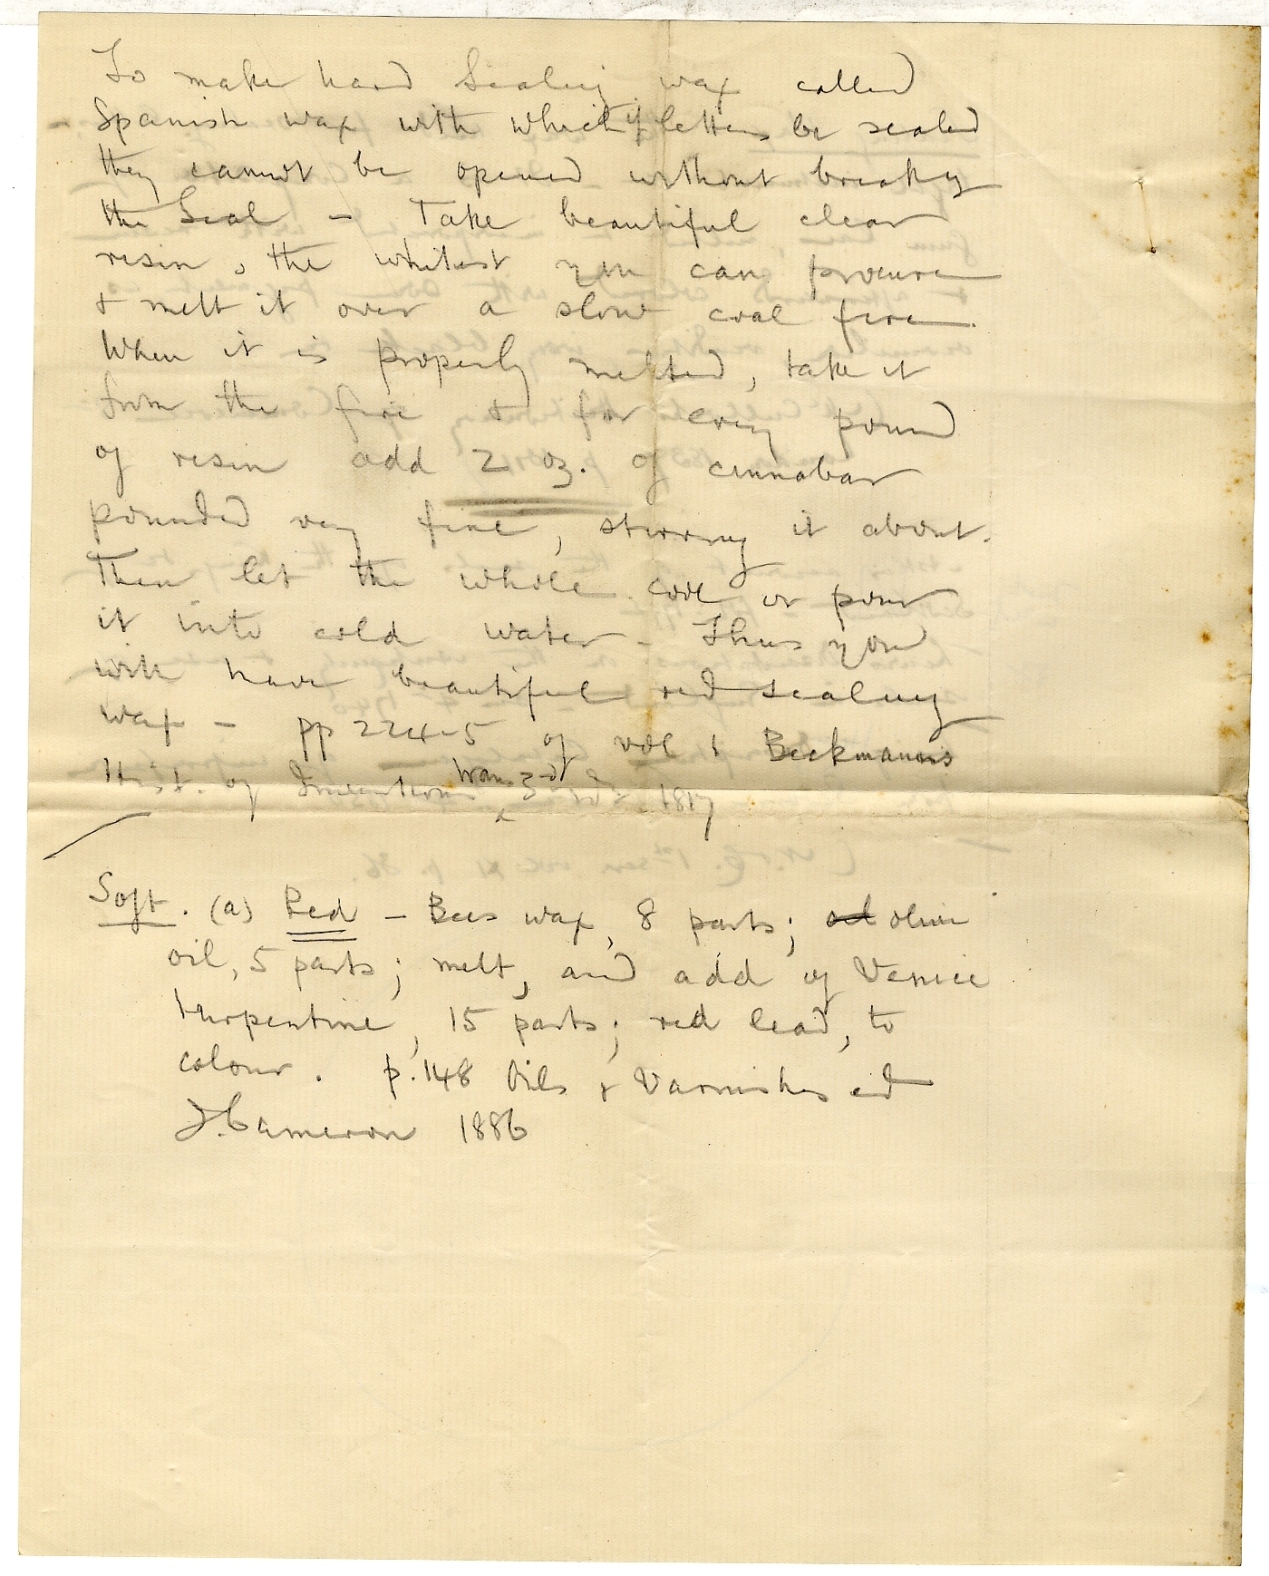 To make hard Sealing wax called
Spanish wax with which if letters be sealed
they cannot be opened without breaking
the Seal - Take beautiful clear
resin, the whitest you can procure
& melt it over a slow coal fire.
When it is properly melted, take it
from the fire & for every pound
of resin add 2 oz. of cinnabar
pounded very fine, stirring it about.
Then let the whole cool or pour
it into cold water - Thus you
will have beautiful red sealing
wax - pp 224-5 of vol 1 Beckmanns
Hist. of Inventions trans 3rd Ed. 1817
Soft. (a) Red - Bees wax, 8 parts; olive
oil, 5 parts; melt, and add of Venice
turpentine, 15 parts; red lead, to
colour. p.148 Oils & Varnishes ed
J. Cameron 1886